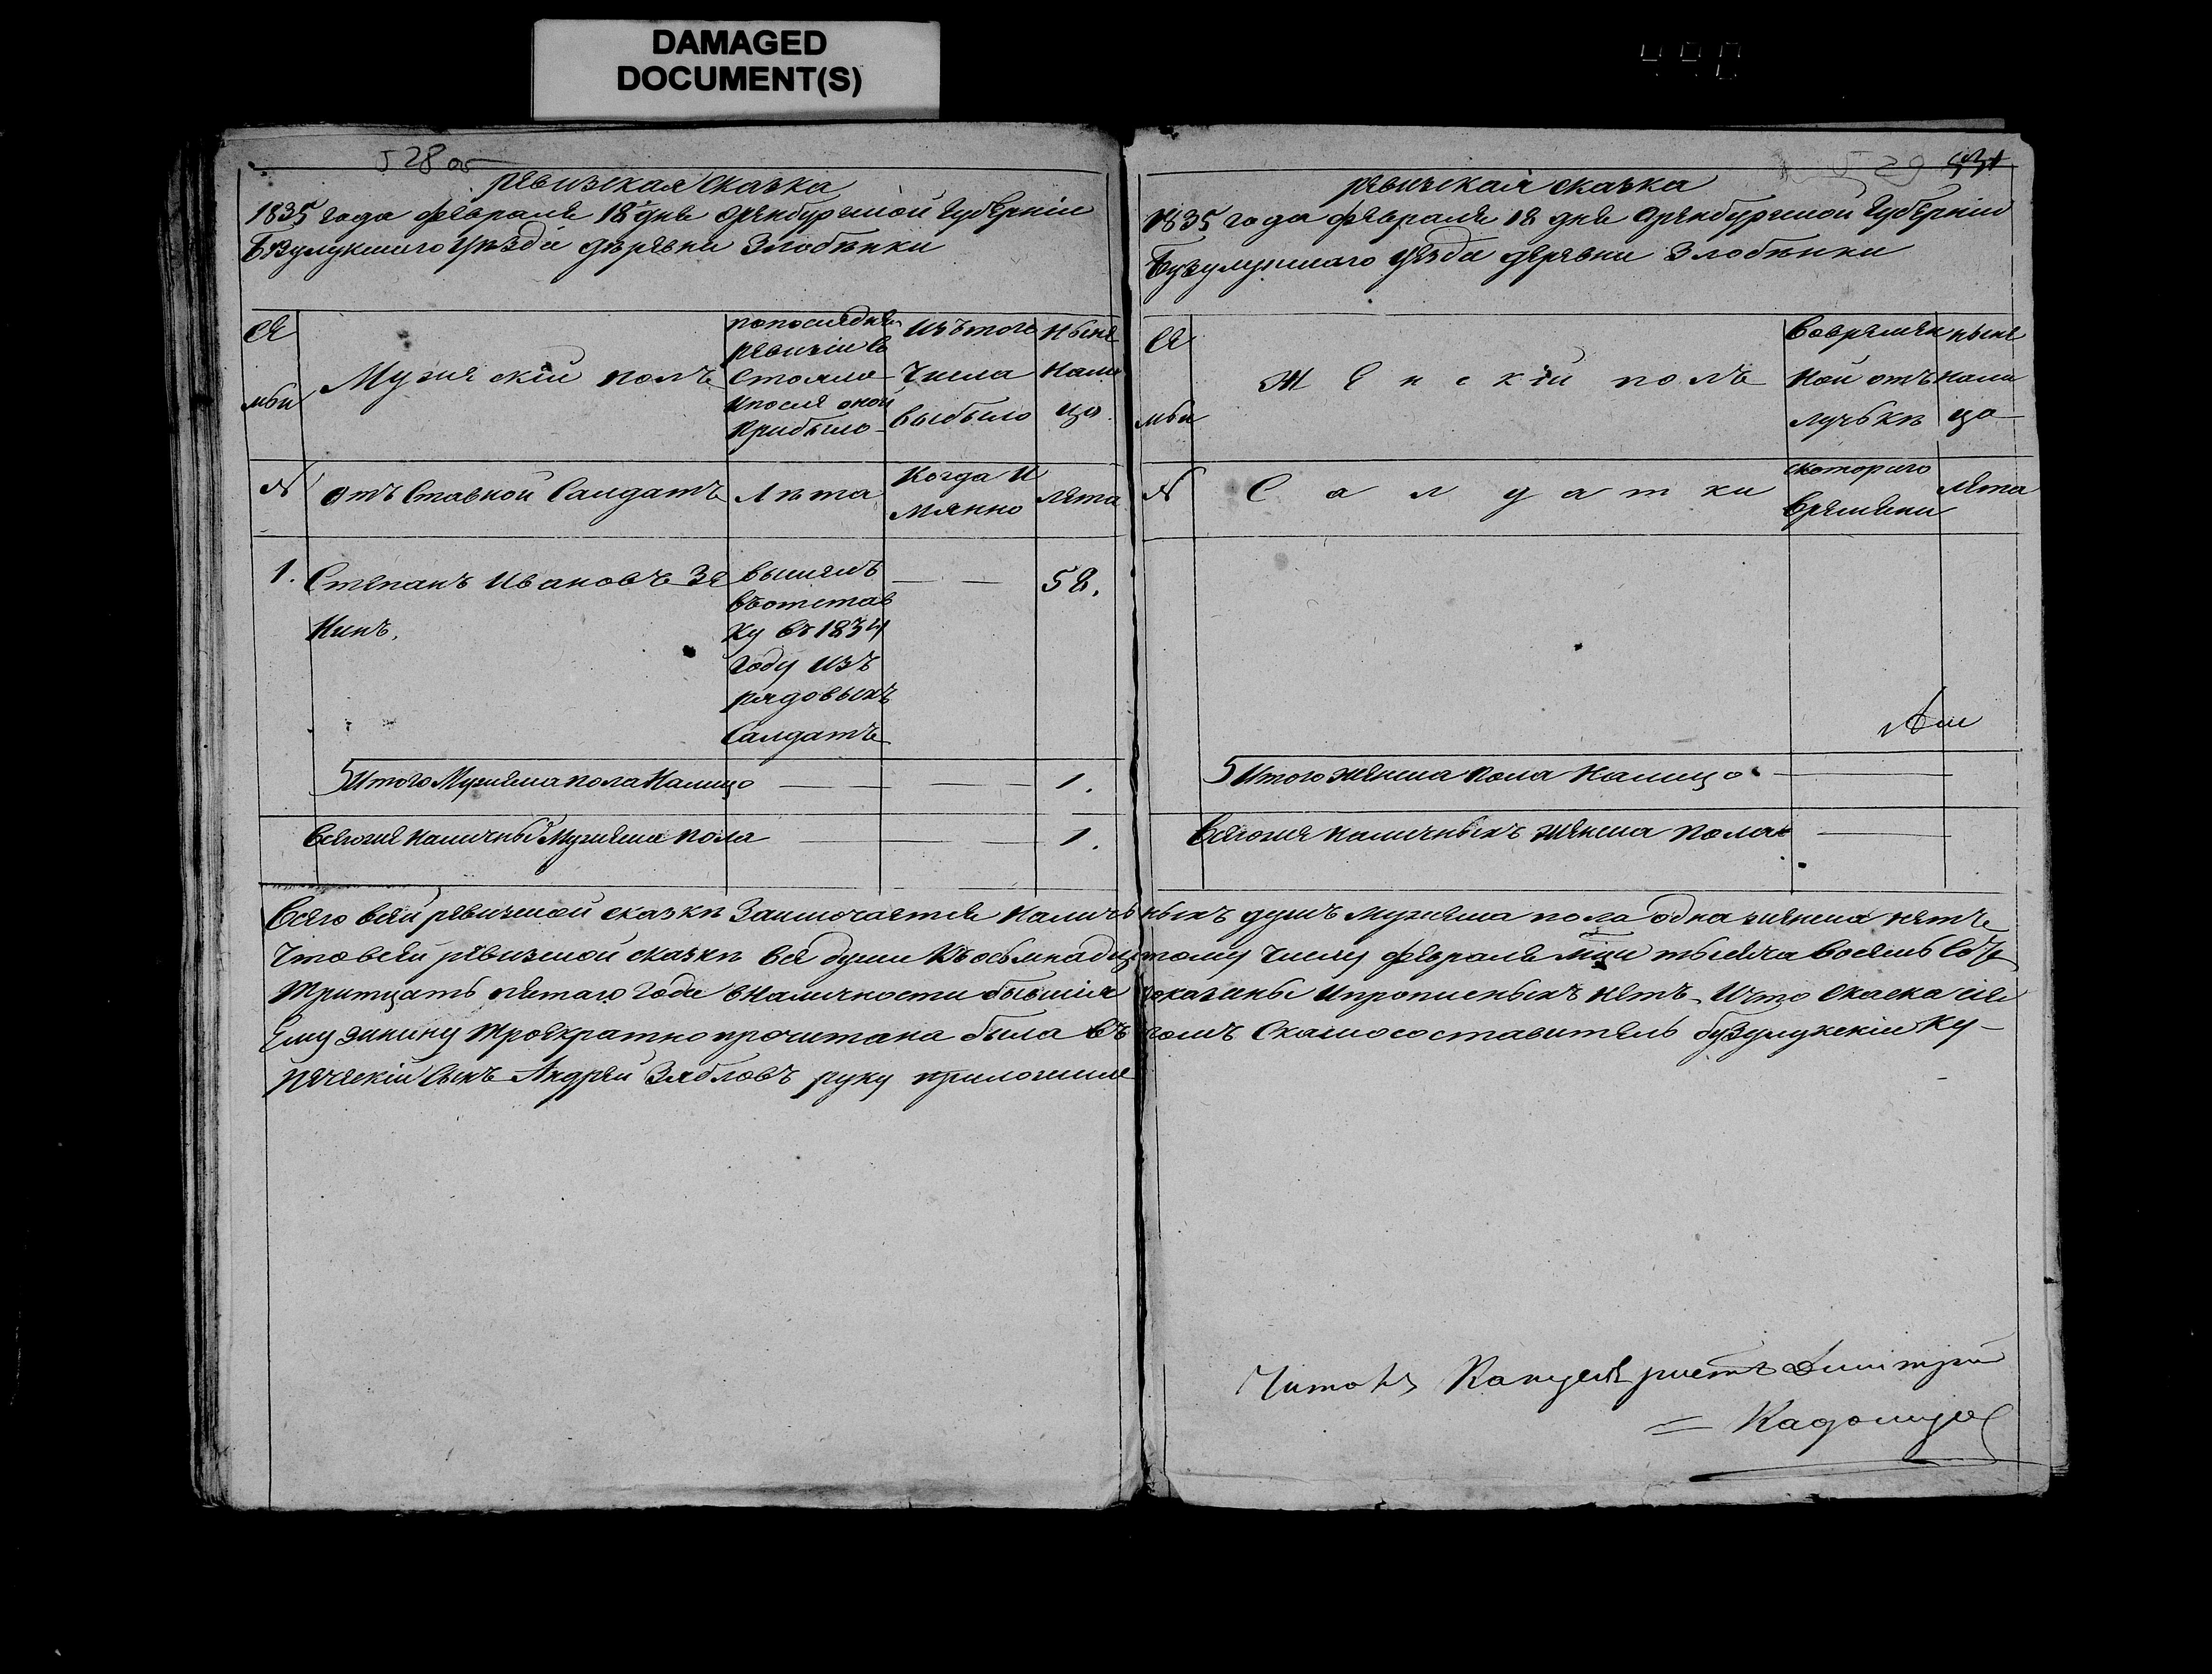 DAMAGED
DOCUMENT(S)
528 об
ревизская сказка
1835 года февраля 18 дня Оренбургской Губерніи
Бузулукского Уезда деревни Злобинки
Се
мьи
Мужескій полъ
попоследней
ревизіи со
стояло
ипосле оной
прибыло
изътого
числа
выбыло
Ныне
Нали
цо.
№
отъставной Салдатъ
Лета
Когда и
мянно
лета
1. Степанъ Ивановъ Зе
Кинъ.
вышелъ
въотстав
ку въ 1834
году изъ
рядовыхъ
Салдатъ
58.
Итого Мужеска пола Налицо 1.
Всегоже наличны Мужеска пола 1.
529
ревизская сказка
1835 года февраля 18 дня Оренбургской Губерніи
Бузулукскаго уезда деревни Злобинки
Се
мьи
Женскій полъ
Вовремен
ной отъ
лучьке
ныне
нали
цо
№
Салдатки
скотораго
времяни
лета
Итого женска пола Налицо
Всегоже наличныхъ женска пола
Всего всей ревизской сказке Заключается Наличьныхъ душъ мужеска пола одна женска нетъ
Что всей ревизской сказке все души Къосьмнадцатому числу февраля тысеча восемь сотъ
Тритцать пятаго Года вНаличности бывшія показаны Ипрописныхъ нетъ. Ичто сказка сія
Ему Зикину Троекратно прочитана была въ томъ Сказкосоставитель бузулукскій Ку-
печескій Сынъ Андрей Зяблов руку приложилъ
Читалъ Канцеляристъ Димитрий